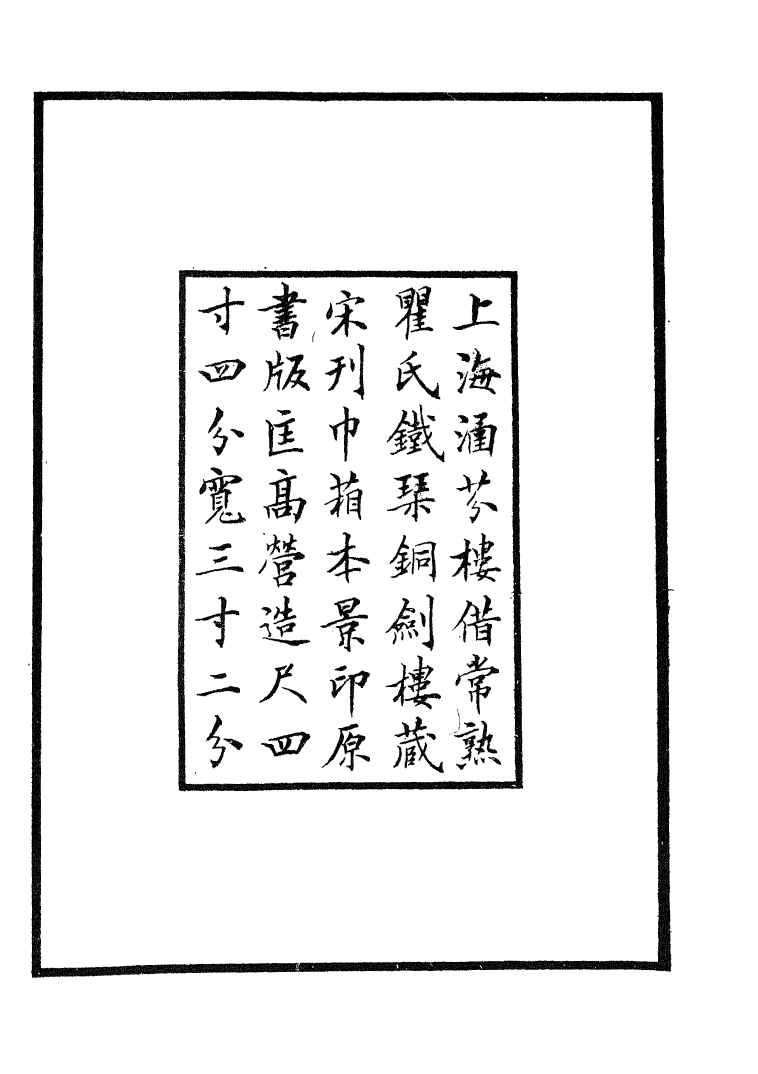 上海涵芬樓借常熟
瞿氏鐵琴銅劍樓藏
宋刊巾葙本景印原
書版匡高營造尺四
寸四分寬三寸二分